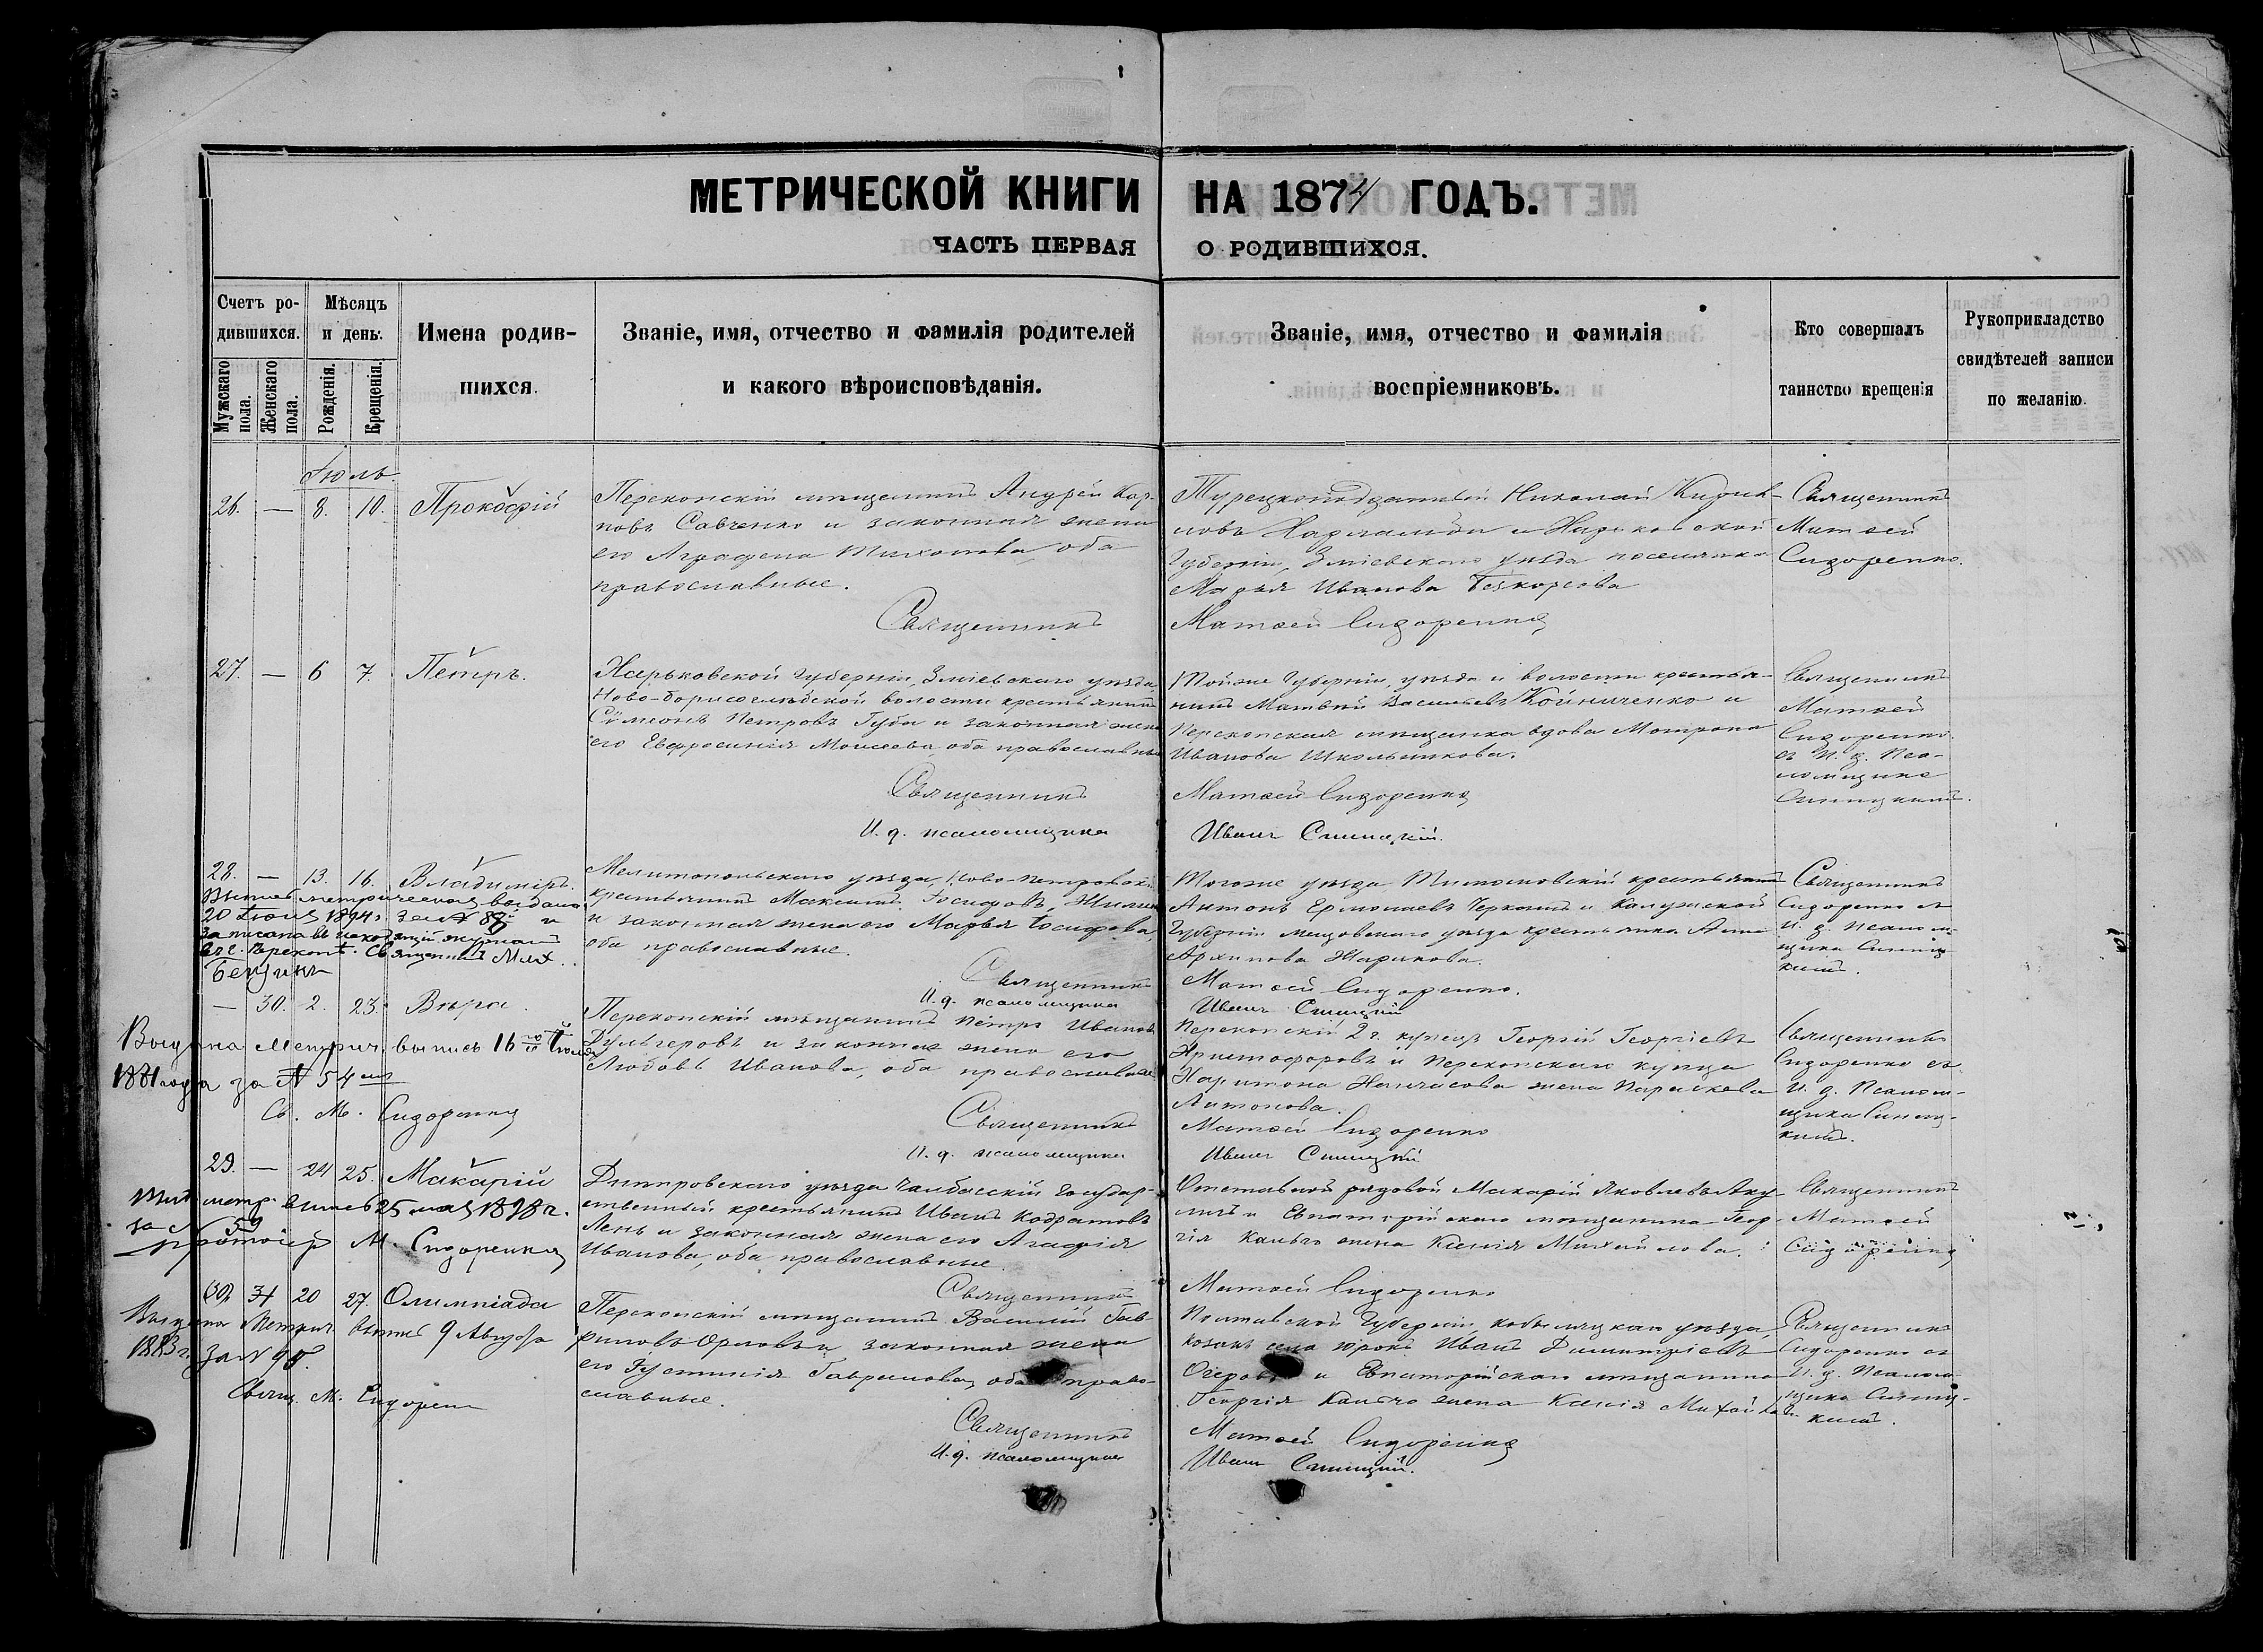 МЕТРИЧЕСКОЙ КНИГИ НА 1874 ГОДЪ.
ЧАСТЬ ПЕРВАЯ О РОДИВШИХСЯ.
Счетъ ро-
дившихся.
Мужскаго пола.
Женскаго пола.
Мѣсяцъ
и день.
Рожденія.
Крещенія.
Имена родив-
шихся.
Званіе, имя, отчество и фамилія родителей
и какого вѣроисповѣданія.
Званіе, имя, отчество и фамилія
воспріемниковъ.
Кто совершалъ
таинство крещенія
Рукоприкладство
свидѣтелей записи
по желанію.
Іюль.
26. — 8. 10. Прокофій
Перекопскій мѣщанинъ Андрей Кар-
повъ Савченко и законная жена
его Аграфена Тихонова, оба
православные.
Священникъ
Николай
и Харьковской
Губерніи, Зміевскаго уѣзда поселянка
Марья Иванова
Матѳей Сидоренко
Священникъ
Матѳей
Сидоренко.
27. — 6 7. Петръ.
Харьковской Губерніи, Зміевскаго уѣзда,
Ново-борисоглѣбской волости крестьянинъ
Сѵмеонъ Петровъ Губа и законная жена
его Евфросинія Моисеева, оба православные
Священникъ
И. д. псаломщика
Тойже Губерніи, уѣзда и волости крестья-
нинъ Матвѣй Васильевъ и
Перекопская мѣщанка вдова Матрона
Иванова Школьникова.
Матѳей Сидоренко
Иванъ Синицкій.
Священникъ
Матѳей
Сидоренко
съ И. д. Пса-
ломщика
Синицкимъ.
28. — 13. 16. Владиміръ.
метрическая выдана
20 Іюня 1894 г. за № и
записана въ исходящій журналъ
Священникъ Мих.
Мелитопольскаго уѣзда, Ново-Петровскій
крестьянинъ Максимъ Іосифовъ
и законная жена его Марья Іосифова,
оба православные.
Священникъ
И. д. псаломщика
Тогоже уѣзда крестьянинъ
Антонъ Ермолаевъ и Калужской
Губерніи Мещовскаго уѣзда крестьянка Анна
Архипова Жарикова.
Матѳей Сидоренко.
Иванъ Синицкій
Священникъ
Сидоренко съ
И. д. Псалом-
щика Синиц-
кимъ.
— 30. 2. 23. Вѣра.
Выдана метрич. выпись 16 Іюля
1881 года за № 54
Св. М. Сидоренко
Перекопскій мѣщанинъ Петръ Ивановъ
Дульгеровъ и законная жена его
Любовь Иванова, оба православные
Священникъ
И. д. псаломщика
Перекопскій 2 г. купецъ Георгій Георгіевъ
Христофоровъ и Перекопскаго купца
Харитона жена Параскева
Антонова.
Матѳей Сидоренко
Иванъ Синицкій
Священникъ
Сидоренко съ
И. д. Псалом-
щика Синиц-
кимъ.
29. — 24 25. Макарій
метр. выпись 25 мая 1898 г.
за № 59
протоіер. М. Сидоренко
Днѣпровскаго уѣзда Чалбасскій Государ-
ственный крестьянинъ Иванъ Кодратовъ
Лень и законная жена его Агафія
Иванова, оба православные.
Священникъ
Отставной рядовой Макарій Яковлевъ
и Евпаторійскаго мѣщанина Геор-
гія жена Ксенія Михайлова.
Матѳей Сидоренко
Священникъ
Матѳей
Сидоренко
31 20 27. Олимпіада
Выдана Метрич. выпись 9 Августа
1883 г. за № 90.
Свящ. М. Сидоренко
Перекопскій мѣщанинъ Василій Гав-
риловъ Орловъ и законная жена
его Іустинія Гаврилова, оба право-
славные.
Священникъ
И. д. псаломщика
Полтавской Губерніи, кобыляцкаго уѣзда,
козакъ села Иванъ Димитріевъ
и Евпаторійскаго мѣщанина
Георгія жена Ксенія Михайлова.
Матѳей Сидоренко
Иванъ Синицкій.
Священникъ
Сидоренко съ
И. д. Псалом-
щика Синиц-
кимъ.